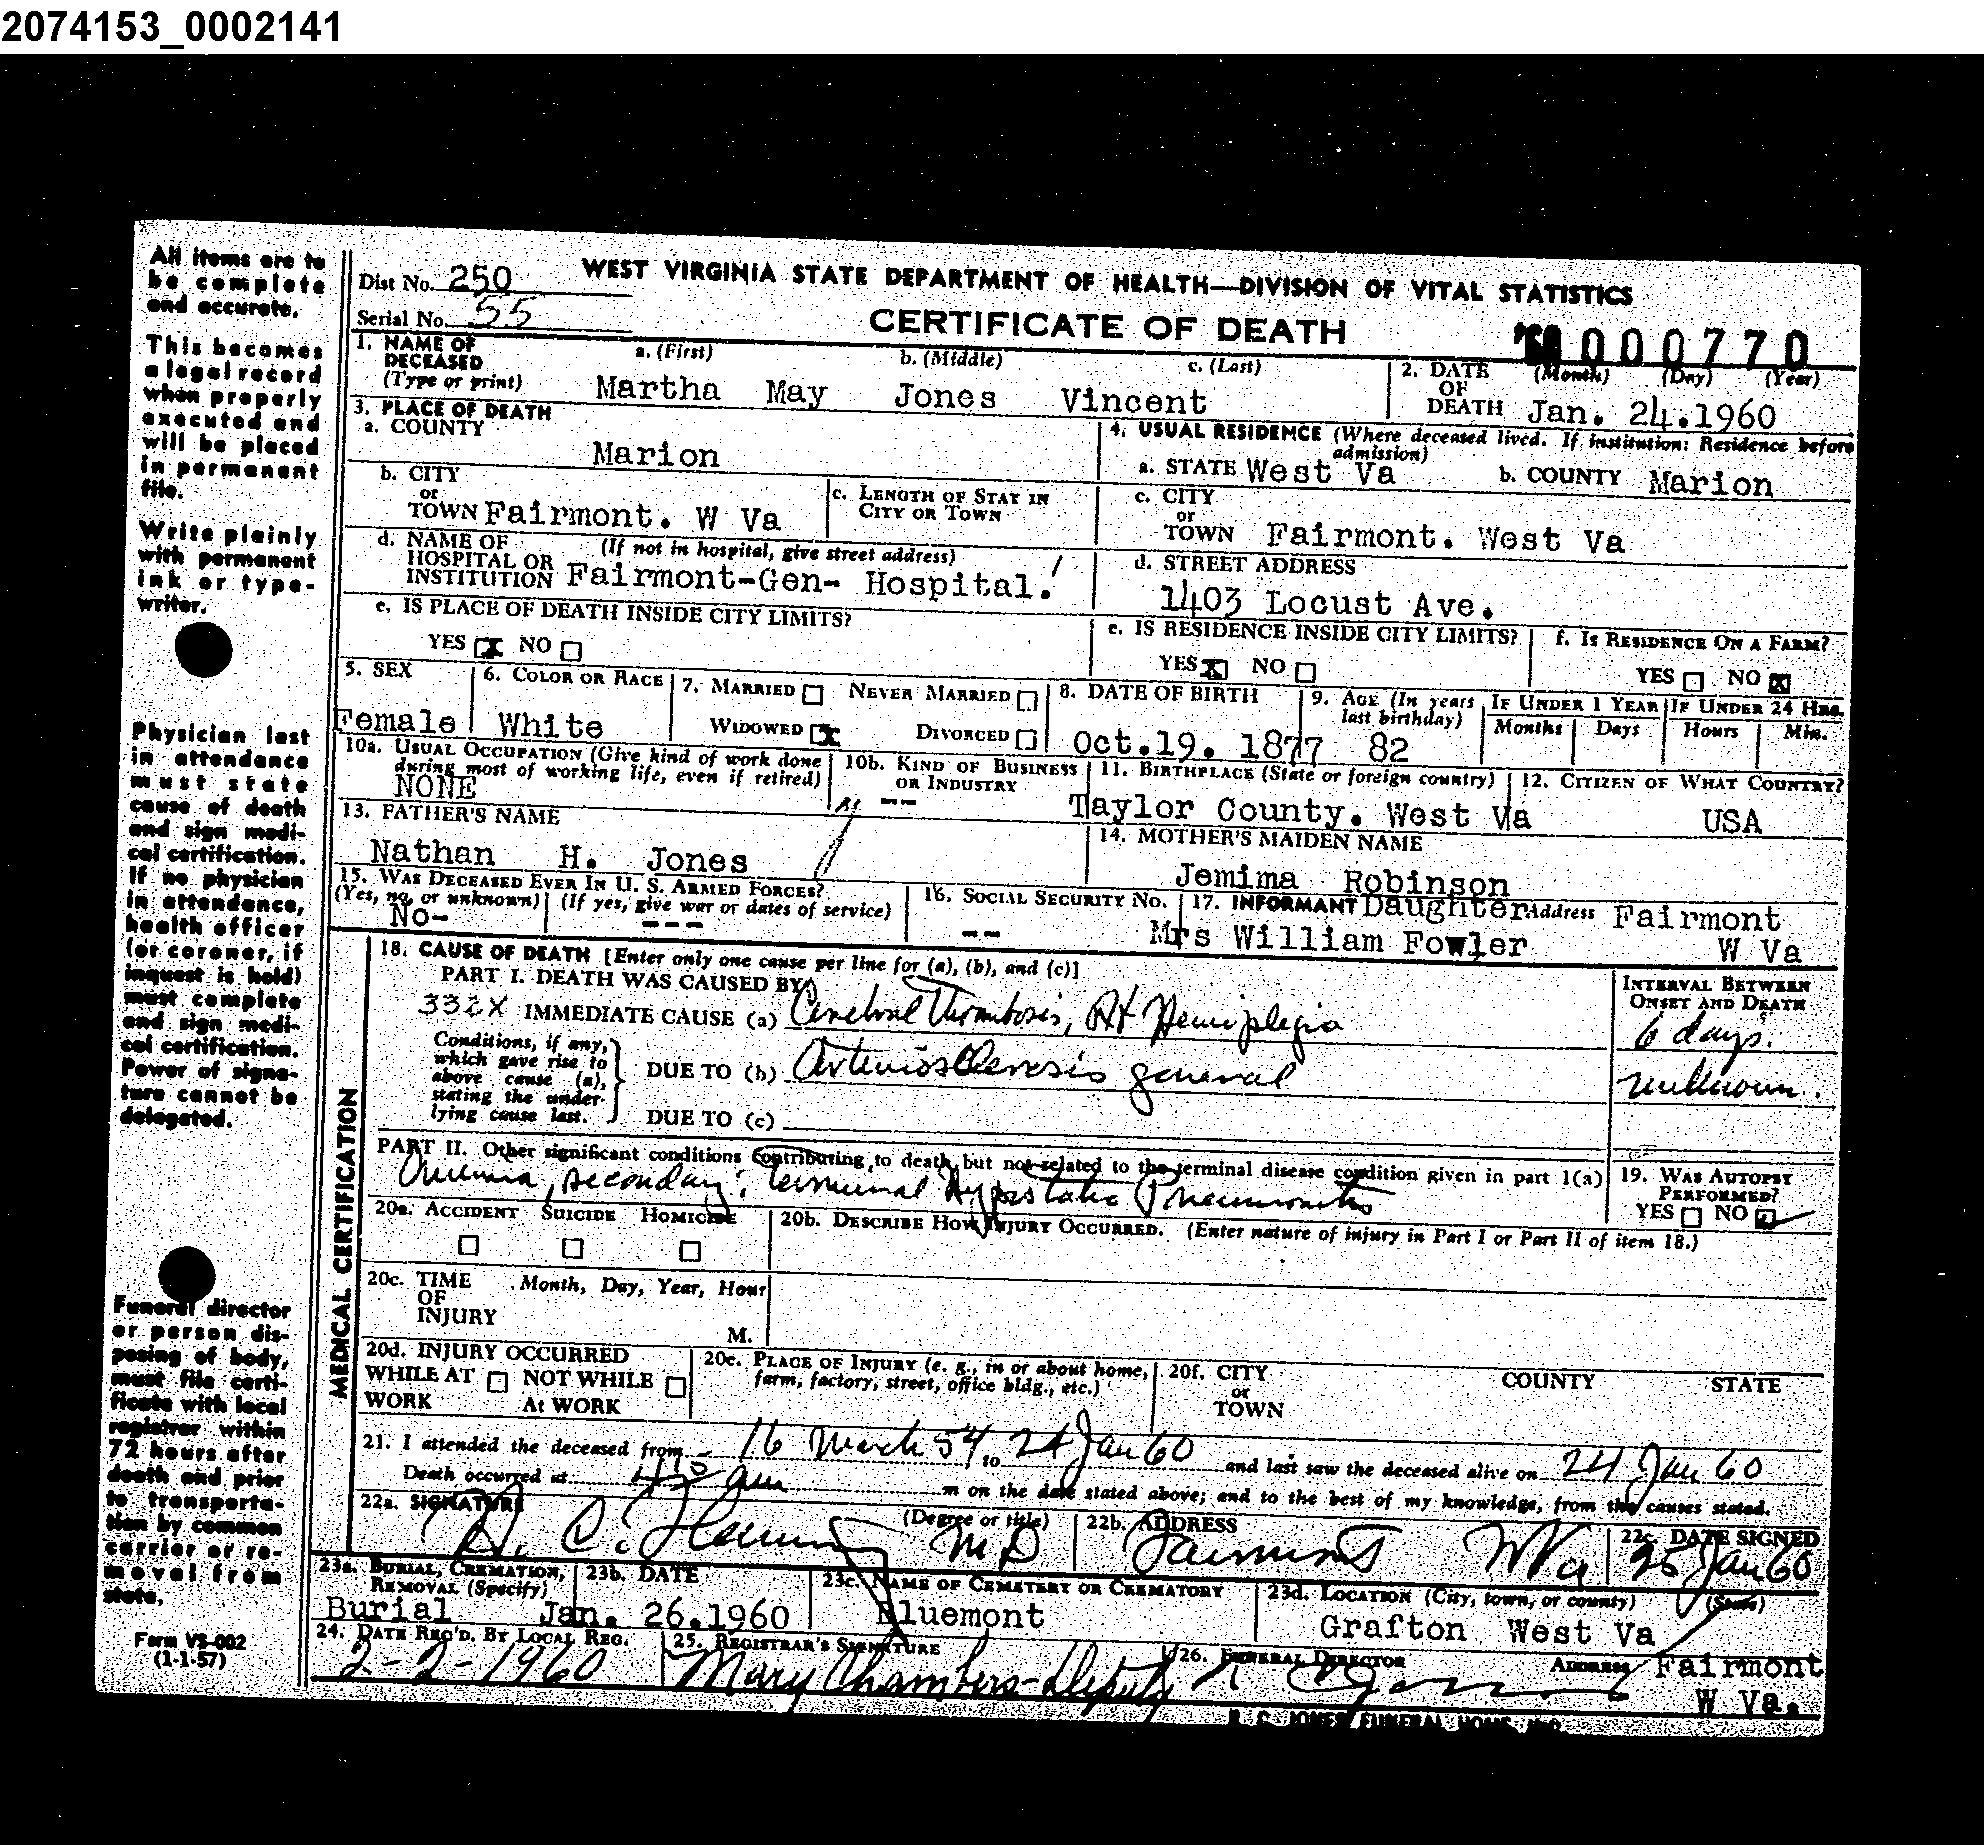 2074153_0002141
All items are to
be complete
and accurate.
This becomes
a legal record
when properly
executed and
will be placed
in permanent
file.
Write plainly
with permanent
ink or type-
writer.
Physician last
in attendance
must state
cause of death
and sign medi-
cal certification.
If no physician
in attendance,
health officer
(or coroner, if
inquest is held)
must complete
and sign medi-
cal certification.
Power of signa-
ture cannot be
delegated.
Funeral director
or person dis-
posing of body,
must file certi-
ficate with local
registrar within
72 hours after
death and prior
to transporta-
tion by common
carrier or re-
moval from
state.
Form VS-002
(1-1-57)
Dist No. 250 WEST VIRGINIA STATE DEPARTMENT OF HEALTH—DIVISION OF VITAL STATISTICS
Serial No. 55 CERTIFICATE OF DEATH 000770
1. NAME OF DECEASED (Type or print) a. (First) b. (Middle) c. (Last)
Martha May Jones Vincent
2. DATE OF DEATH (Month) (Day) (Year)
Jan. 24.1960
3. PLACE OF DEATH
a. COUNTY
Marion
4. USUAL RESIDENCE (Where deceased lived. If institution: Residence before admission)
a. STATE West Va b. COUNTY Marion
b. CITY or TOWN Fairmont. W Va
c. LENGTH OF STAY IN CITY OR TOWN
c. CITY or TOWN Fairmont. West Va
d. NAME OF HOSPITAL OR INSTITUTION (If not in hospital, give street address)
Fairmont-Gen- Hospital.
d. STREET ADDRESS
1403 Locust Ave.
e. IS PLACE OF DEATH INSIDE CITY LIMITS?
YES X NO
e. IS RESIDENCE INSIDE CITY LIMITS?
YES X NO
f. IS RESIDENCE ON A FARM?
YES NO X
5. SEX
Female
6. COLOR OR RACE
White
7. MARRIED NEVER MARRIED
WIDOWED X DIVORCED
8. DATE OF BIRTH
Oct.19. 1877
9. AGE (In years last birthday)
82
IF UNDER 1 YEAR
Months Days
IF UNDER 24 HRS.
Hours Min.
10a. USUAL OCCUPATION (Give kind of work done during most of working life, even if retired)
NONE
10b. KIND OF BUSINESS OR INDUSTRY
--
11. BIRTHPLACE (State or foreign country)
Taylor County. West Va
12. CITIZEN OF WHAT COUNTRY?
USA
13. FATHER'S NAME
Nathan H. Jones
14. MOTHER'S MAIDEN NAME
Jemima Robinson
15. WAS DECEASED EVER IN U. S. ARMED FORCES?
(Yes, no, or unknown) (If yes, give war or dates of service)
No- ---
16. SOCIAL SECURITY NO.
--
17. INFORMANT Daughter Address Fairmont
Mrs William Fowler W Va
MEDICAL CERTIFICATION
18. CAUSE OF DEATH [Enter only one cause per line for (a), (b), and (c)]
PART I. DEATH WAS CAUSED BY
INTERVAL BETWEEN ONSET AND DEATH
332X IMMEDIATE CAUSE (a) Cerebral Thrombosis, Rt Hemiplegia 6 days.
Conditions, if any,
which gave rise to
above cause (a),
stating the under-
lying cause last.
DUE TO (b) Arteriosclerosis general unknown.
DUE TO (c)
PART II. Other significant conditions contributing to death but not related to the terminal disease condition given in part I(a)
Anemia, secondary; Terminal Hypostatic Pneumonitis
19. WAS AUTOPSY PERFORMED?
YES NO
20a. ACCIDENT SUICIDE HOMICIDE
20b. DESCRIBE HOW INJURY OCCURRED. (Enter nature of injury in Part I or Part II of item 18.)
20c. TIME OF INJURY Month, Day, Year, Hour
M.
20d. INJURY OCCURRED
WHILE AT WORK NOT WHILE At WORK
20e. PLACE OF INJURY (e. g., in or about home, farm, factory, street, office bldg., etc.)
20f. CITY or TOWN COUNTY STATE
21. I attended the deceased from 16 March 54, to 24 Jan 60 and last saw the deceased alive on 24 Jan 60
Death occurred at am m on the date stated above; and to the best of my knowledge, from the causes stated.
22a. SIGNATURE (Degree or title)
H. C. MD
22b. ADDRESS
Fairmont WVa
22c. DATE SIGNED
25 Jan 60
23a. BURIAL, CREMATION, REMOVAL (Specify)
Burial
23b. DATE
Jan. 26.1960
23c. NAME OF CEMETERY OR CREMATORY
Bluemont
23d. LOCATION (City, town, or county) (State)
Grafton West Va
24. DATE REC'D. BY LOCAL REG.
2-2-1960
25. REGISTRAR'S SIGNATURE
Mary Chambers-Deputy
26. FUNERAL DIRECTOR ADDRESS Fairmont
W Va.
JONES FUNERAL HOME